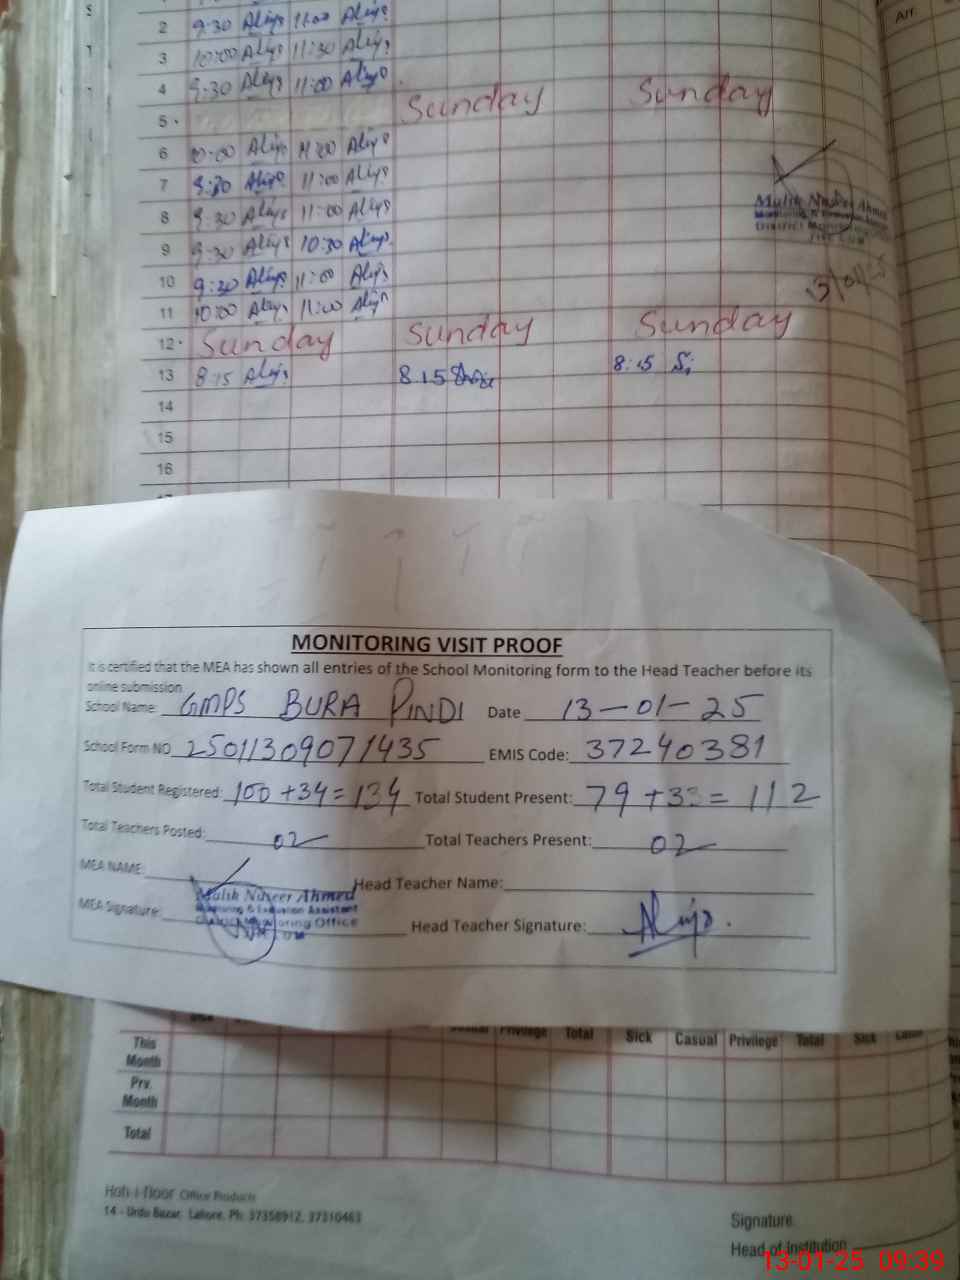 Arr.
2 9:30 Aliya 11:00 Aliya
3 10:00 Aliya 11:30 Aliya
4 9:30 Aliya 11:00 Aliya
5 Sunday Sunday
6 Aliya Aliya
7 9:30 Aliya 11:00 Aliya
8 9:30 Aliya 11:00 Aliya
Malik Naseer Ahmed
9 9:30 Aliya 10:30 Aliya
10 9:30 Aliya 11:00 Aliya
11 10:00 Aliya 11:00 Aliya
12 Sunday Sunday Sunday
13 8:15 Aliya 8:15 8:15
14
15
16
MONITORING VISIT PROOF
It is certified that the MEA has shown all entries of the School Monitoring form to the Head Teacher before its
online submission.
School Name: GMPS BURA PINDI Date 13-01-25
School Form NO 25011309071435 EMIS Code: 37240381
Total Student Registered: 100+34=134 Total Student Present: 79+33=112
Total Teachers Posted: 02 Total Teachers Present: 02
MEA NAME: Head Teacher Name:
Malik Naseer Ahmed
Monitoring & Evaluation Assistant
District Monitoring Office
MEA Signature: Head Teacher Signature: Aliya.
Sick Casual Privilege Total Sick Casual Privilege Total Sick Casual
This
Month
Prv.
Month
Total
Koh-i-Noor Office Products
14 - Urdu Bazar, Lahore. Ph: 37358912, 37310463
Signature
Head of Institution
13-01-25 09:39